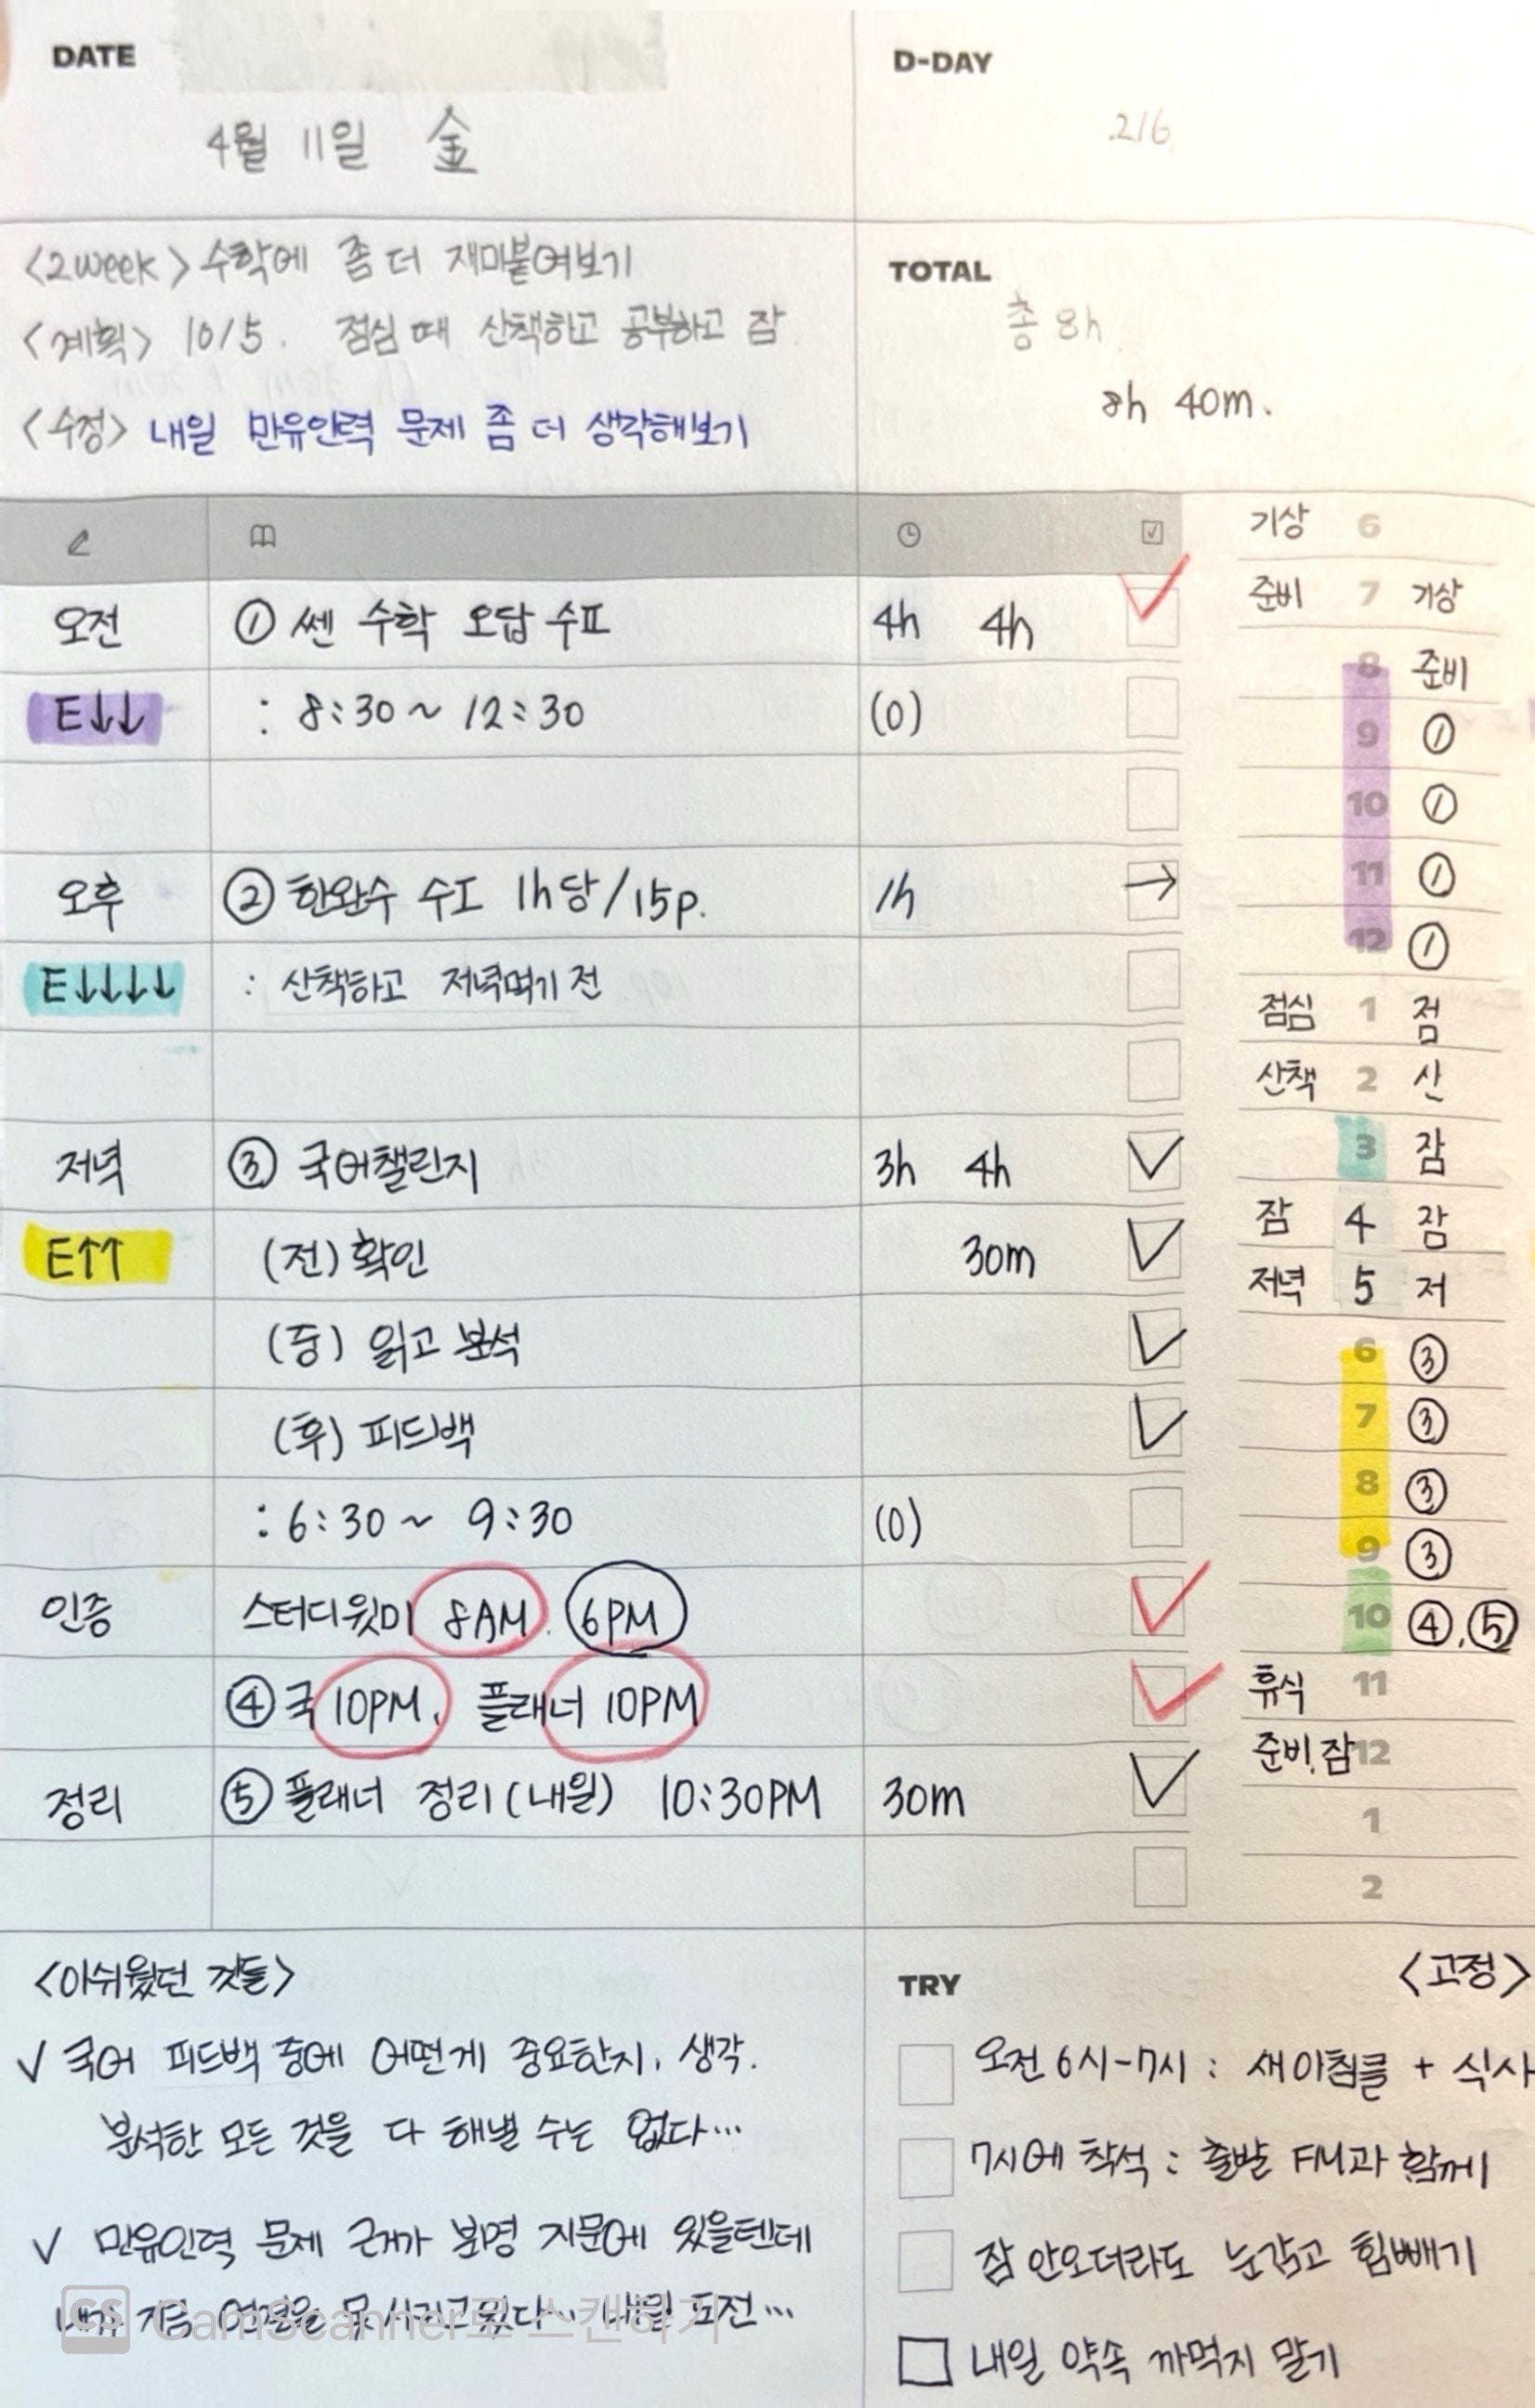 DATE
4월 11일 金
D-DAY
216
<2week> 수학에 좀 더 재미붙여보기
<계획> 10/5. 점심 때 산책하고 공부하고 잠
<수정> 내일 만유인력 문제 좀 더 생각해보기
TOTAL
총 8h.
8h 40m.
오전 ① 쎈 수학 오답 수II 4h 4h
E↓↓ : 8:30 ~ 12:30 (0)
오후 ② 한완수 수I 1h당/15p. 1h →
E↓↓↓↓ : 산책하고 저녁먹기 전
저녁 ③ 국어챌린지 3h 4h
E↑↑ (전) 확인 30m
(중) 읽고 분석
(후) 피드백
: 6:30 ~ 9:30 (0)
인증 스터디윗미 8AM. 6PM
④ 국 10PM. 플래너 10PM
정리 ⑤ 플래너 정리 (내일) 10:30PM 30m
기상 6
준비 7 기상
8 준비
9 ①
10 ①
11 ①
12 ①
점심 1 점
산책 2 산
3 잠
잠 4 잠
저녁 5 저
6 ③
7 ③
8 ③
9 ③
10 ④, ⑤
휴식 11
준비, 잠 12
1
2
<아쉬웠던 것들>
✓ 국어 피드백 중에 어떤게 중요한지, 생각.
분석한 모든 것을 다 해낼 수는 없다…
✓ 만유인력 문제 근거가 분명 지문에 있을텐데
내가 지금 연결을 못 시키고 있다… 내일 도전…
CS CamScanner로 스캔하기
TRY <고정>
오전 6시-7시 : 새아침클 + 식사
7시에 착석 : 출발 FM과 함께
잠 안오더라도 눈감고 힘빼기
내일 약속 까먹지 말기